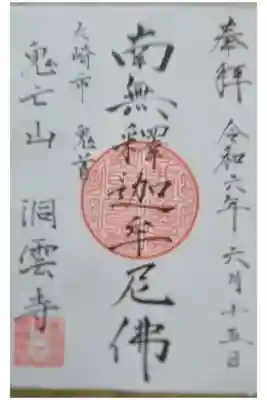 奉拝 令和六年 六月十五日
南無釋迦牟尼佛
大崎市 鬼首
鬼亡山 洞雲寺